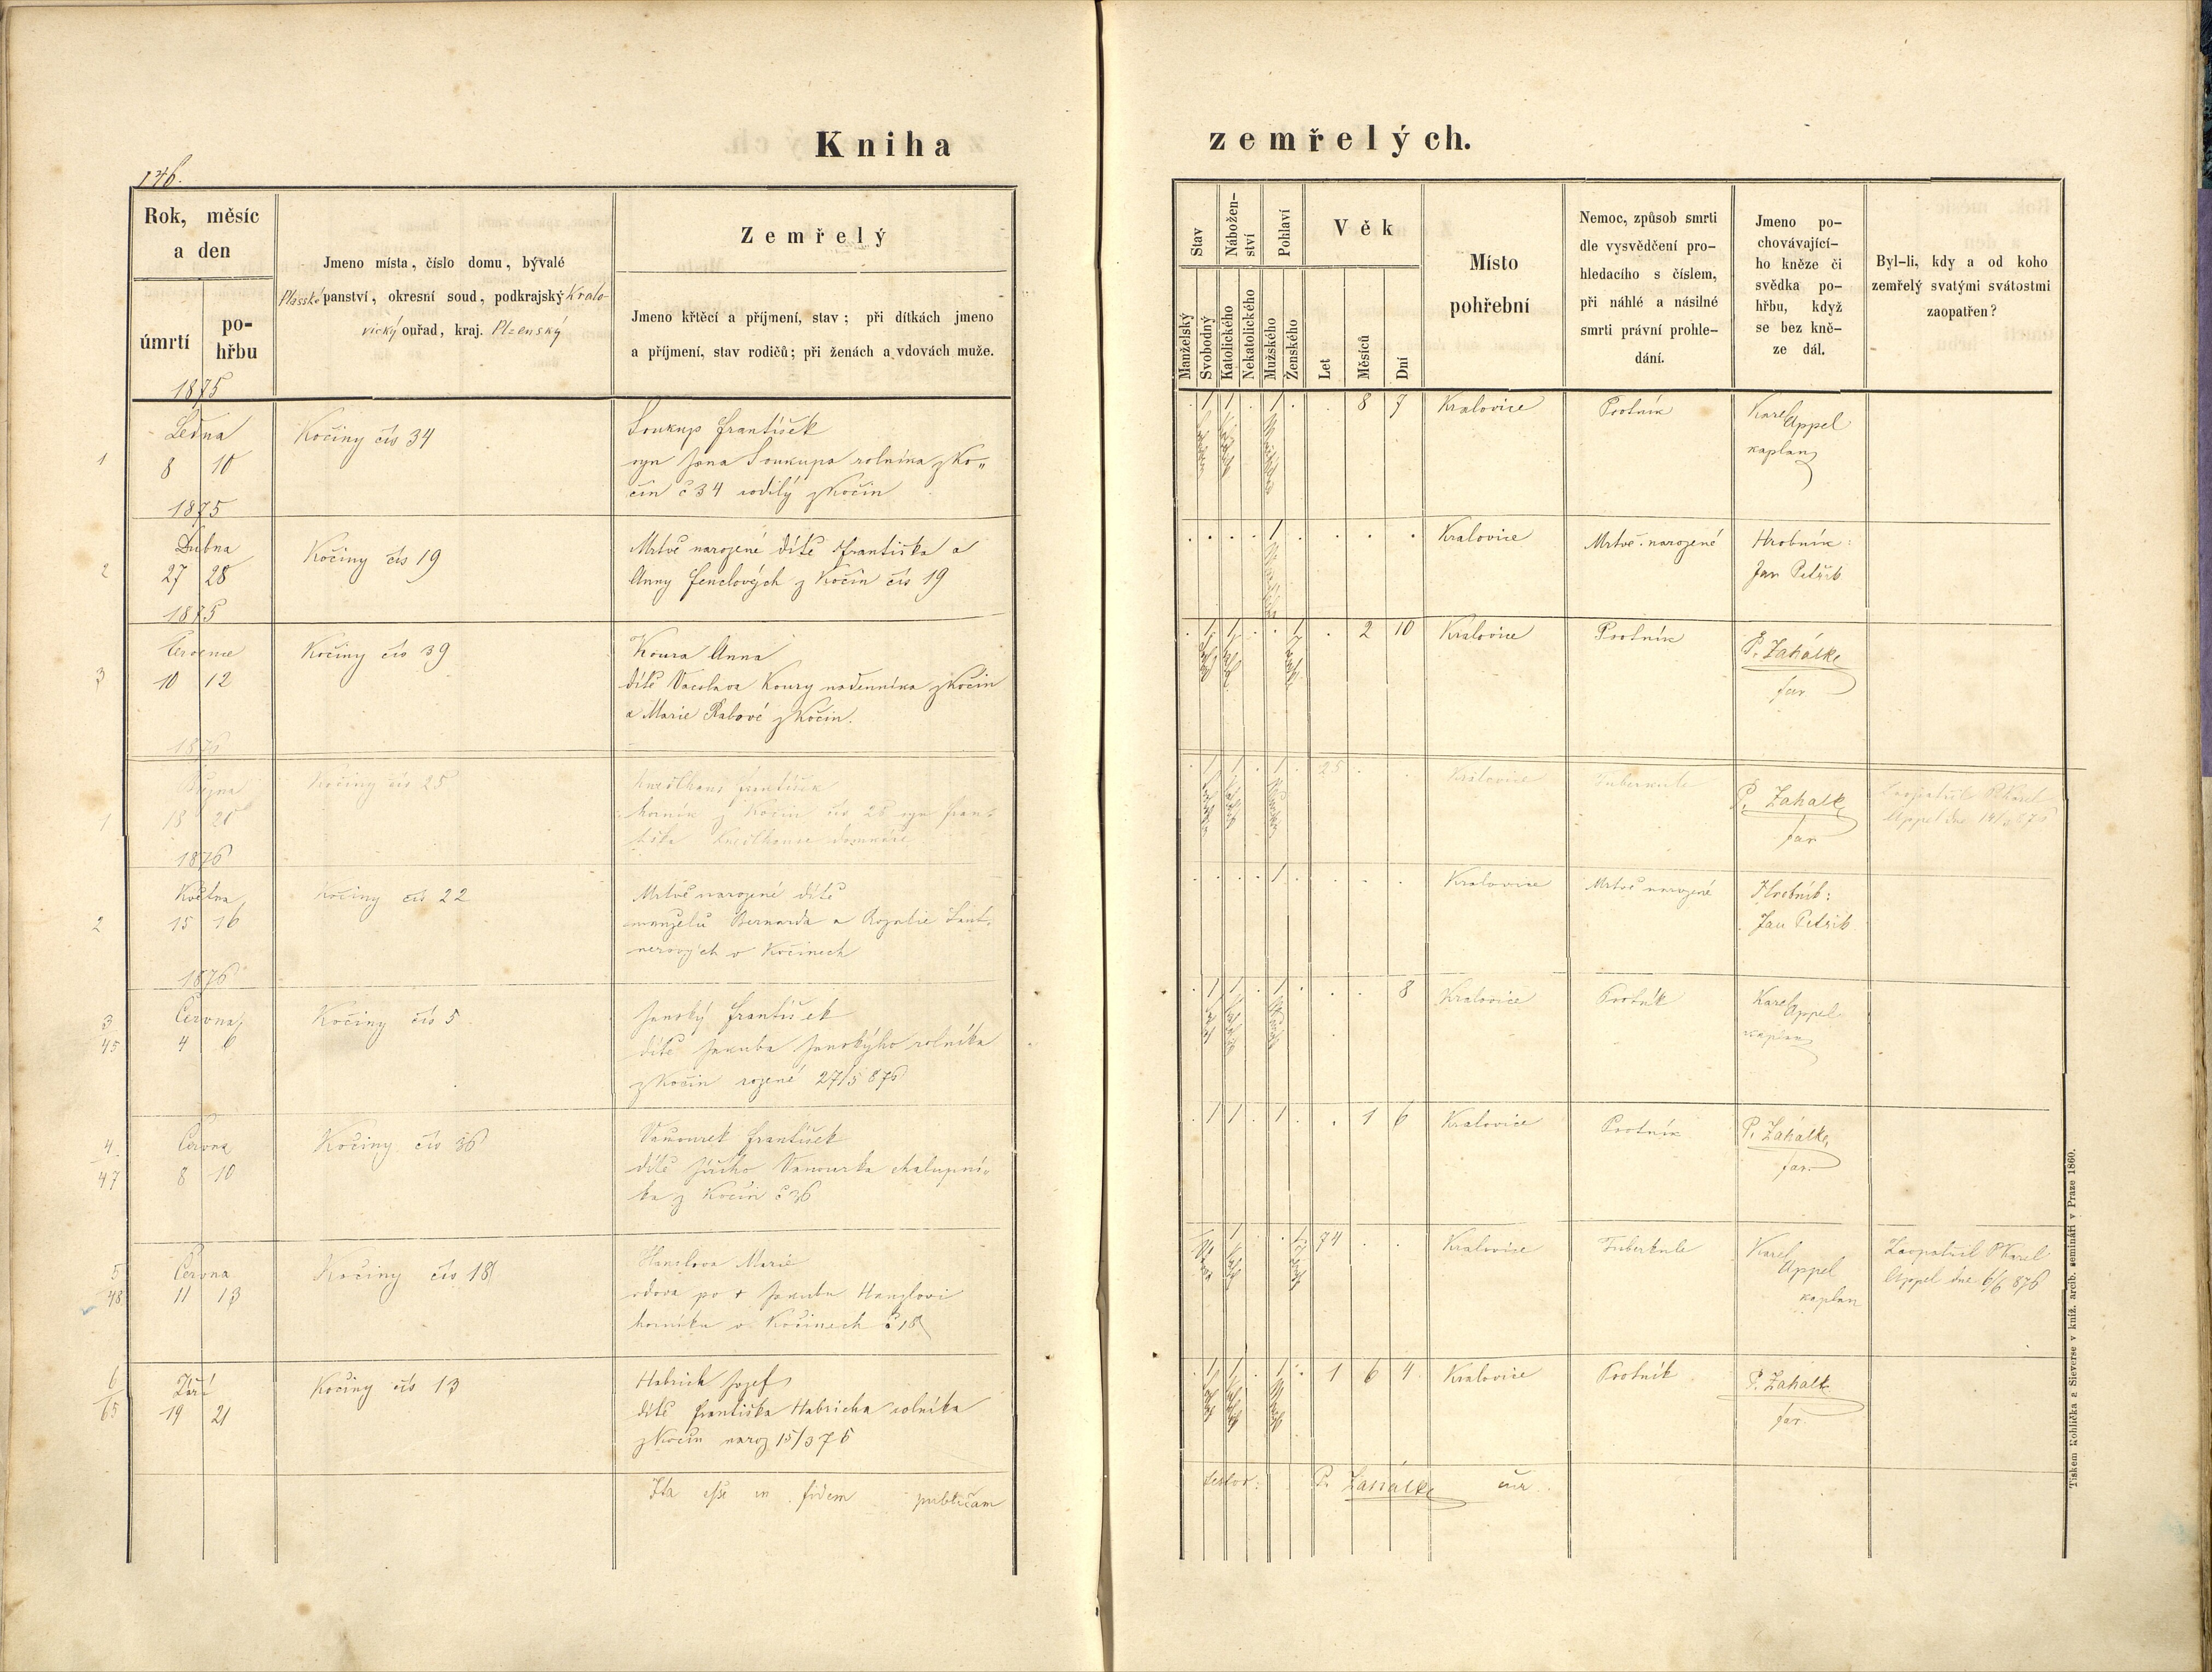 Kniha
zemřelých.
146.
Rok, měsíc
a den
úmrtí
po-
hřbu
Jmeno místa, číslo domu, bývalé
Plasské panství, okresní soud, podkrajský Kralo-
vický ouřad, kraj. Plzenský
Zemřelý
Jmeno křtěcí a příjmení, stav; při dítkách jmeno
a příjmení, stav rodičů; při ženách a vdovách muže.
Stav
Nábožen-
ství
Pohlaví
Věk
Manželský
Svobodný
Katolického
Nekatolického
Mužského
Ženského
Let
Měsíců
Dní
Místo
pohřební
Nemoc, způsob smrti
dle vysvědčení pro-
hledacího s číslem,
při náhlé a násilné
smrti právní prohle-
dání.
Jmeno po-
chovávající-
ho kněze či
svědka po-
hřbu, když
se bez kně-
ze dál.
Byl-li, kdy a od koho
zemřelý svatými svátostmi
zaopatřen?
1875
1
Ledna
8 10
Kočiny čís 34
Soukup František
syn Jana Soukupa rolníka z Ko„
čin č 34 rodilý z Kočin
1 1 . 1 . . 8 7
Kralovice
Psotník
Karel Appel
kaplan
1875
2
Dubna
27 28
Kočiny čís 19
Mrtvě narozené dítě Františka a
Anny Fenclových z Kočin čís 19
. . . . 1 . . . .
Kralovice
Mrtvě narozené
Hrobník:
Jan Petřík
1875
3
Července
10 12
Kočiny čís 39
Koura Anna
dítě Vacslava Koury nádenníka z Kočin
a Marie Rabové z Kočin.
. 1 1 . . 1 . 2 10
Kralovice
Psotník
P. Zahálka
far
1876
1
Října
18 20
Kočiny čís 25
František
horník z Kočin čís 25 syn Fran-
tiška domkáře
. 1 1 . 1 . 25 . .
Kralovice
Tuberkule
P. Zahálka
far
Zaopatřil P Karel
Appel dne
1876
2
Května
15 16
Kočiny čís 22
Mrtvě narozené dítě
manželů Bernarda a Rozalie
nerových v Kočinech
. . . . 1 . . . .
Kralovice
Mrtvě narozené
Hrobník:
Jan Petřík
1876
3
45
Června
4 6
Kočiny čís 5
Janský František
dítě Jakuba Janskýho rolníka
z Kočin rozené 27/5 876
. 1 1 . 1 . . . 8
Kralovice
Psotník
Karel Appel
kaplan
4
47
Června
8 10
Kočiny čís 36
Vanourek František
dítě Jiřího Vanourka chalupní-
ka z Kočin č 36
. 1 1 . 1 . . 1 6
Kralovice
Psotník
P. Zahálka,
far.
5
48
Června
11 13
Kočiny čís 18
Hanzlova Marie
vdova po + Jakubu Hanzlovi
horníku v Kočinech č 18
1 . . 1 74 . .
Kralovice
Tuberkule
Karel
Appel
kaplan
Zaopatřil P Karel
Appel dne 6/6 876
6
65
Září
19 21
Kočiny čís 13
Habrich Josef
dítě Františka Habricha rolníka
z Kočin naroz 15/3 75
. 1 1 . 1 . 1 6 4
Kralovice
Psotník
P. Zahálka
far.
Ita esse in fidem publicam
testor: P. Zahálka
Tiskem Rohlíčka a Sieverse v kníž. arcib. semináři v Praze 1860.